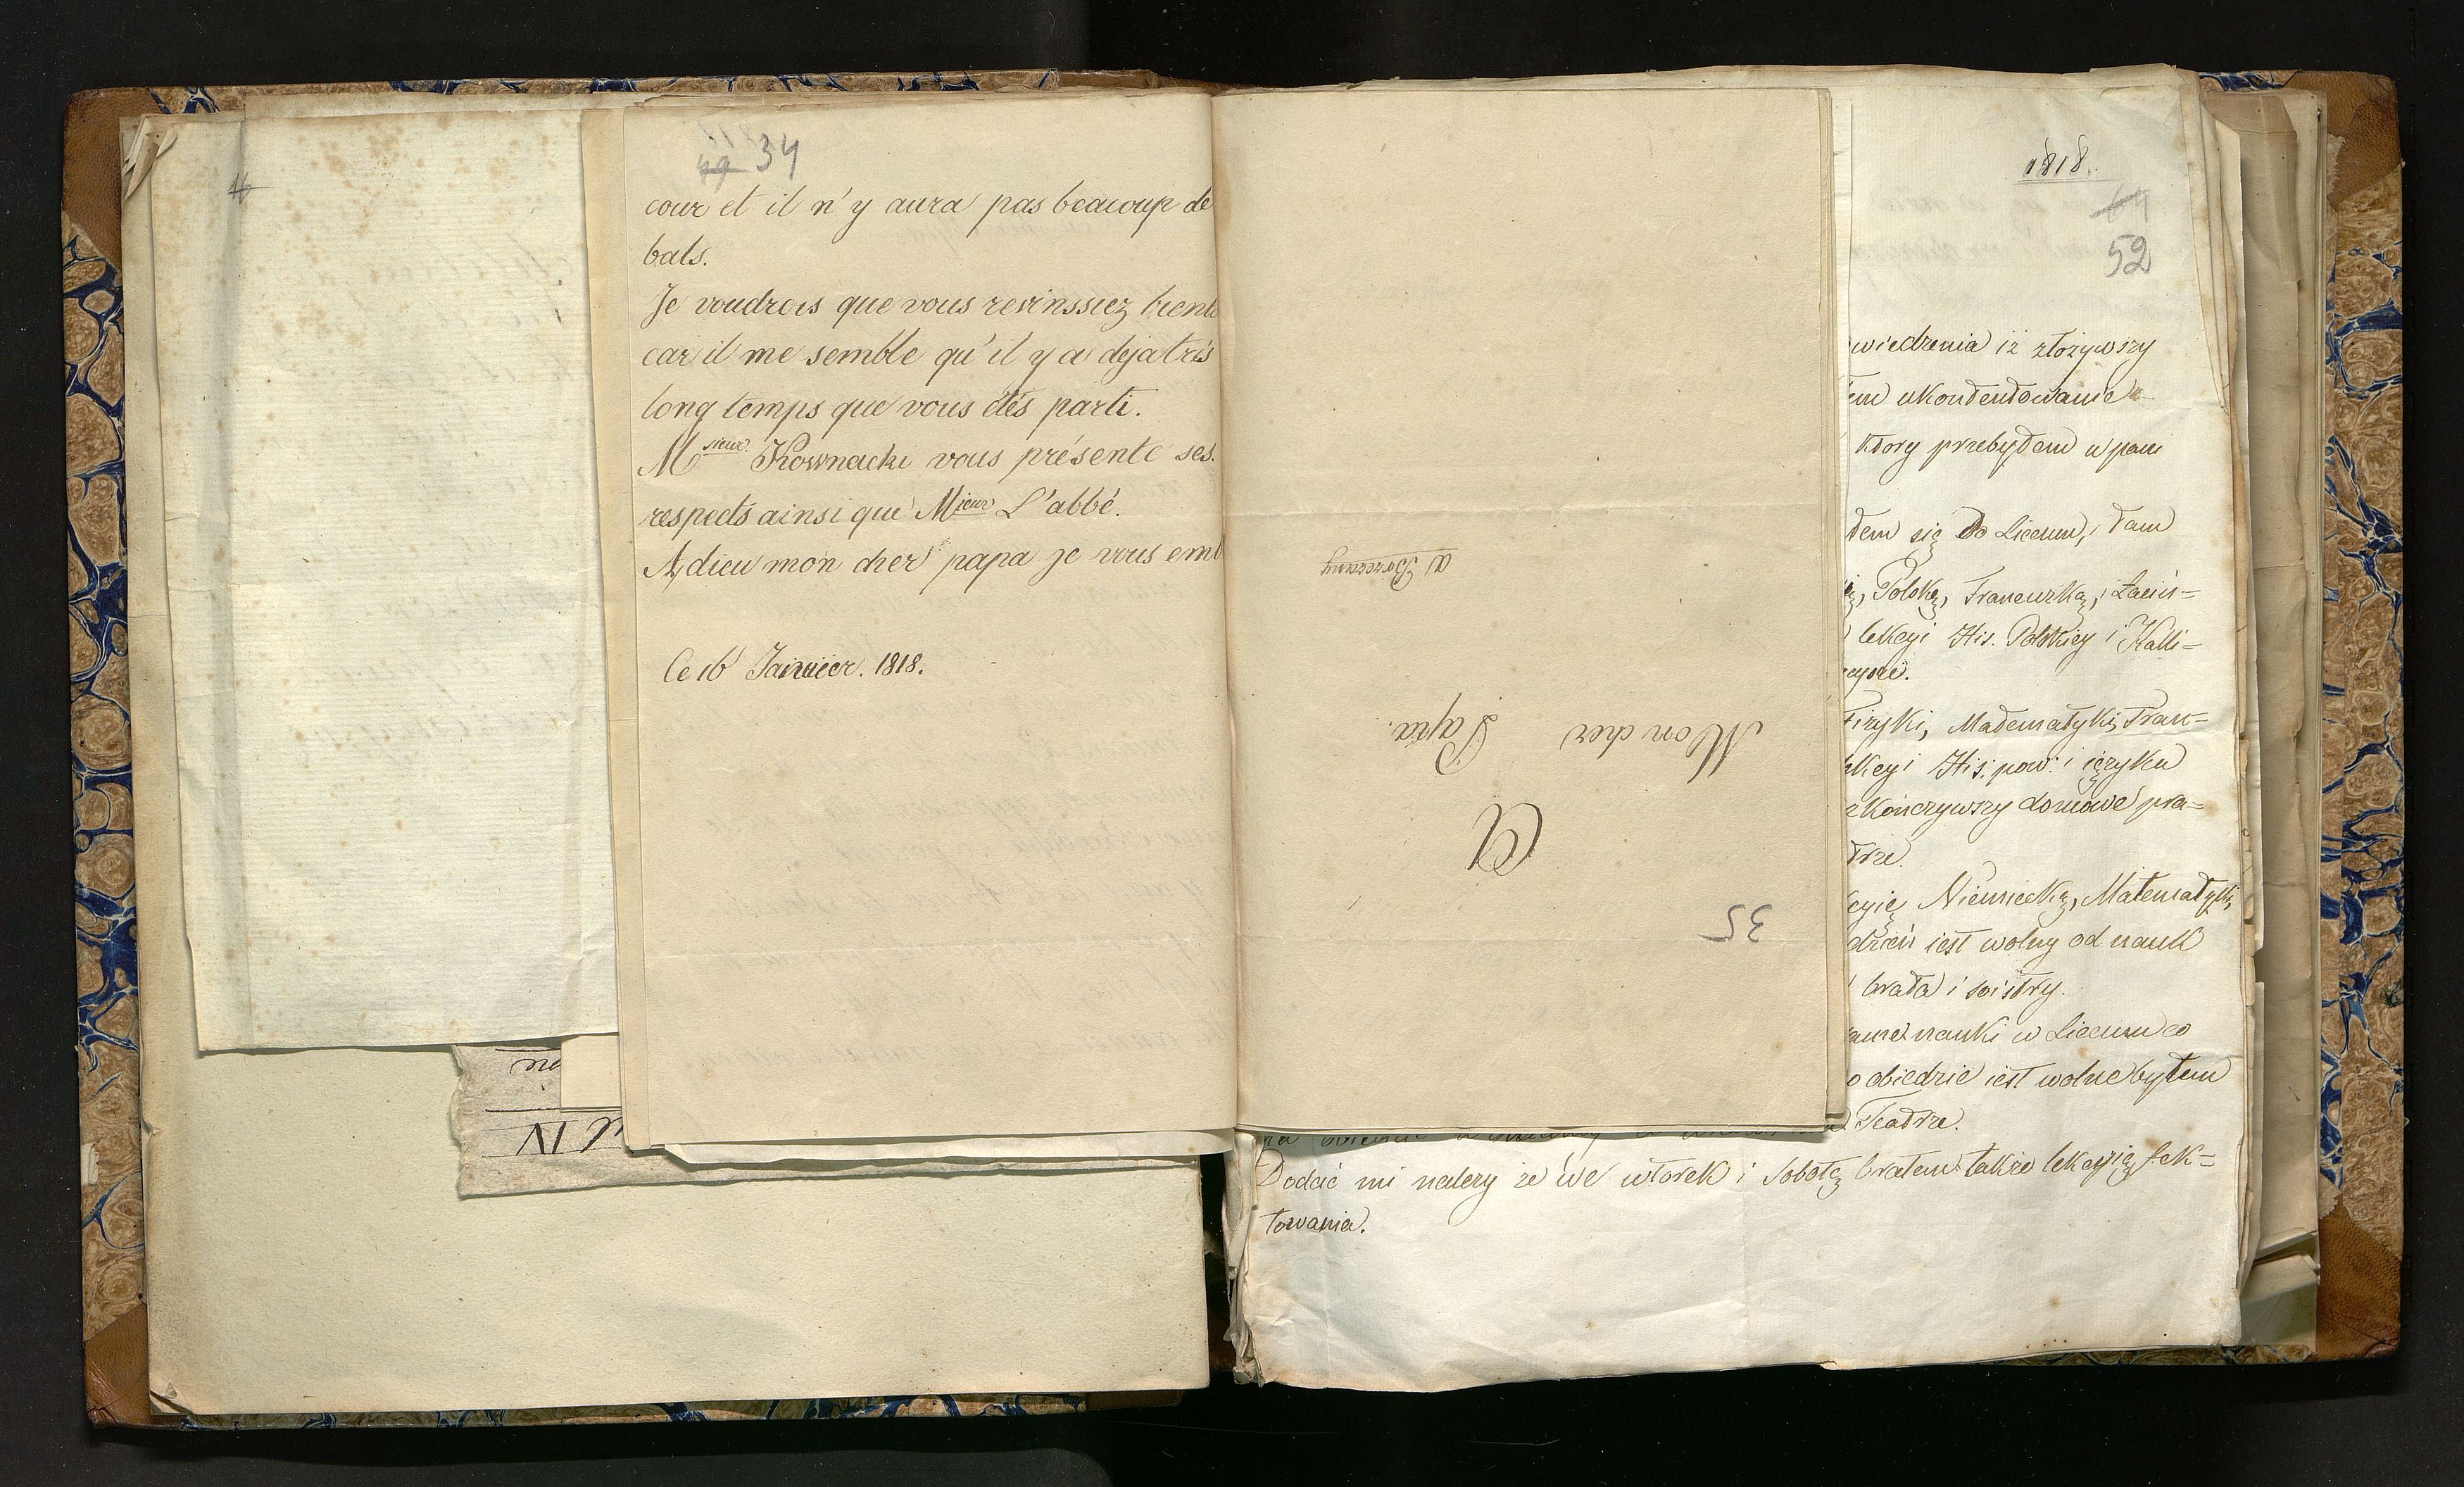 34
cour et il n'y aura pas beaucoup de
bals.
Je voudrois que vous revinssiez
car il me semble qu'il y a deja trés
long temps que vous étés parti.
Msieur. Kownacki vous présente ses
respects ainsi que Mieur L'abbé.
Adieu mon cher papa je vous emb
Ce 16 Janvier. 1818.
35
A
Mon cher Papa.
a Brzezany
1818.
64
52
wiedzenia iż złożywszy
ukontentowanie
ktory przebyłem u pani
łem się do Liceum, tam
Polską, Francuzką, Łaciń=
lekcyi His. Polskiey i Kalli=
Fizyki, Matematyki, Fran=
His. pow: i ięzyka
skończywszy domowe pra=
trze.
Niemiecką, Matematyki,
dzień iest wolny od nauk
brata i siostry.
nauki w Liceum co
obiedzie iest wolne byłem
Teatrze.
Dodać mi należy że we wtorek i Sobotę brałem także lekcyię fek=
towania.
IV